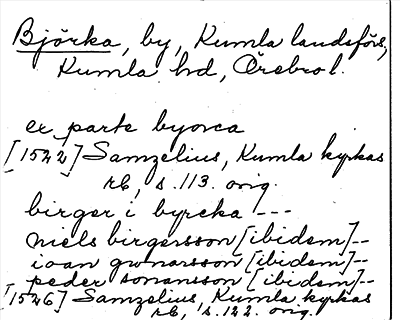 Björka, by, Kumla landsförs,
Kumla hd, Örebro l.
ex parte byorca
[1522] Samzelius, Kumla kyrkas
rb, s. 113. orig.
birger i byrcka ---
niels birgersson [ibidem]--
ioan gunarsson [ibidem]--
peder ionansson [ibidem]--
[1526] Samzelius, Kumla kyrkas
rb, s. 122. orig.